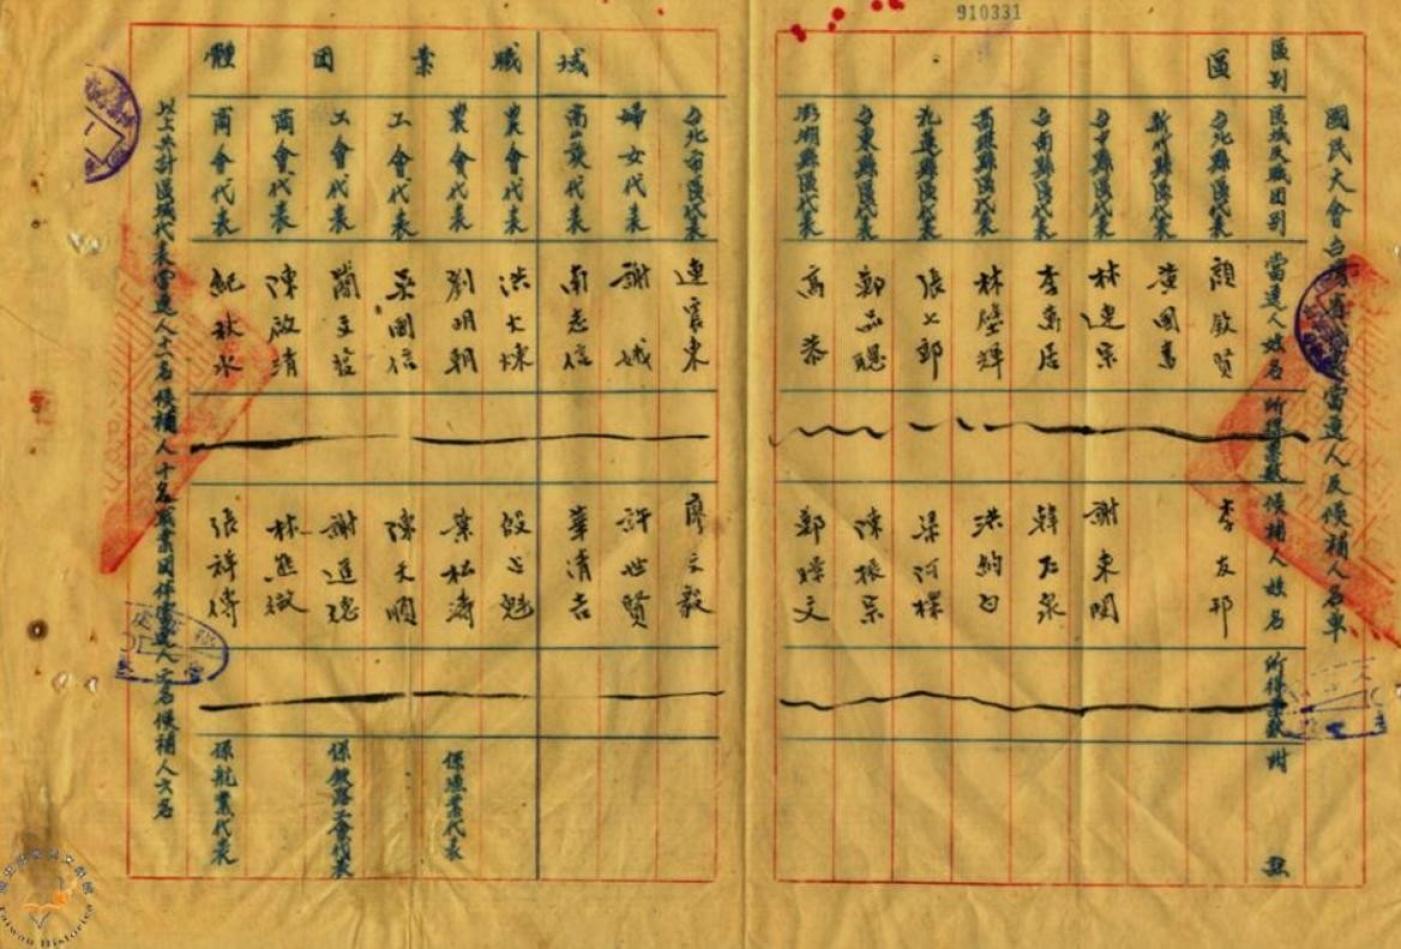 910331
國民大會台灣省代表當選人及候補人名單
區別 區域或職團別 當選人姓名 所得票數 候補人姓名 所得票數 附註
區 台北縣區代表 顏欽賢 李友邦
新竹縣區代表 黃國書
台中縣區代表 林連宗 謝東閔
台南縣區代表 李萬居 韓石泉
高雄縣區代表 林壁輝 洪約白
花蓮縣區代表 張七郎 梁阿標
台東縣區代表 鄭品聰 陳振宗
澎湖縣區代表 高恭
台北市區代表 連震東 廖文毅
婦女代表 謝娥 許世賢
域 高山族代表 南志信 華清吉
職 農會代表 洪火煉 殷占魁
農會代表 劉明朝 葉松濤 係漁業代表
業 工會代表 吳國信 陳天順
工會代表 簡文發 係鐵路工會代表
团 商會代表 陳啟清 林熊徵
體 商會代表 紀秋水 張祥傳 係航業代表
以上共計區域代表當選人十一名候補人十名職業团体當選人六名候補人六名
Taiwan Historica